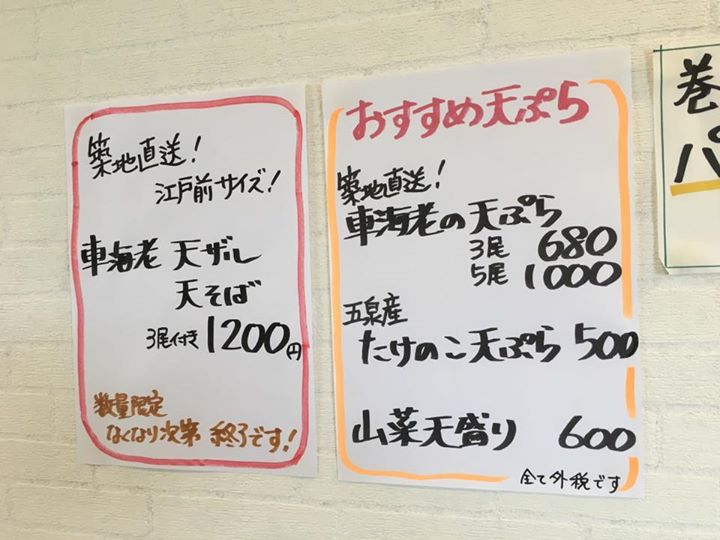 築地直送!
江戸前サイズ!
車海老 天ザル
天そば
3尾付き 1200円
数量限定
なくなり次第 終了です!
おすすめ天ぷら
築地直送!
車海老の天ぷら
3尾 680
5尾 1000
五泉産
たけのこ天ぷら 500
山菜天盛り 600
全て外税です
巻
パ